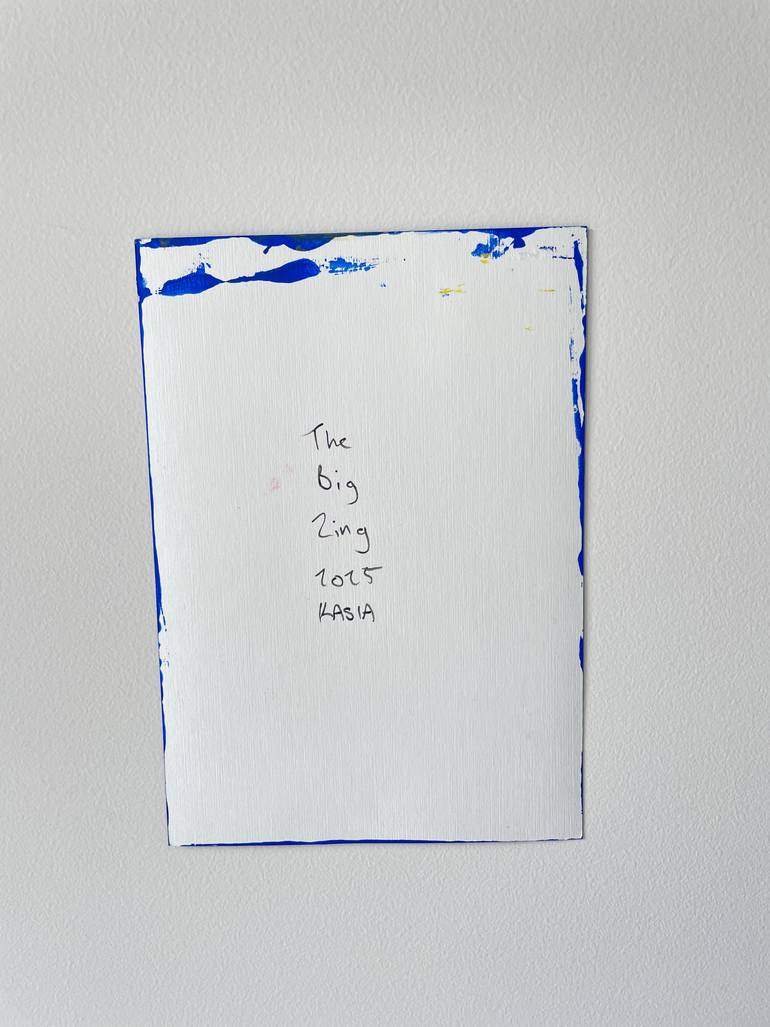 The
Big
Zing
2025
KASIA